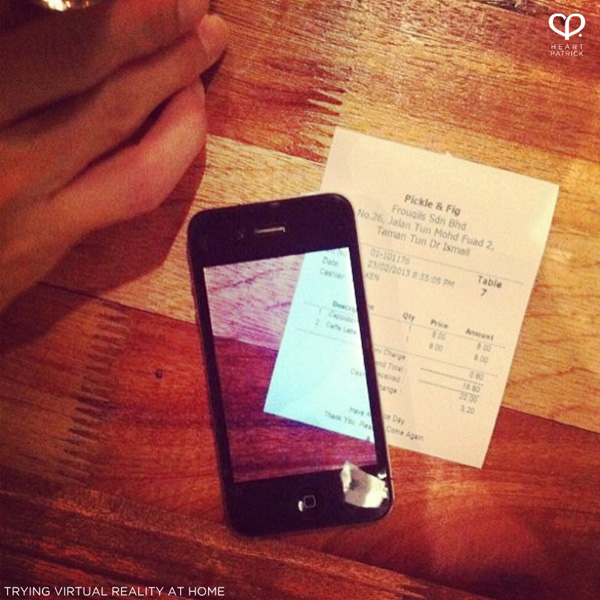 HEART
PATRICK
Pickle & Fig
Frougils Sdn Bhd
No.26, Jalan Tun Mohd Fuad 2,
Taman Tun Dr Ismail
01-101176
Table
Date: 23/02/2013 8:55:05 PM
7
Cashier: KEN
Qty Price Amount
1 1 8.00 8.00
2 Caffe Latte 1 8.00 8.00
Charge 0.80
Total : 16.80
Received : 20.00
Change : 3.20
Have Day
Thank You Come Again
TRYING VIRTUAL REALITY AT HOME